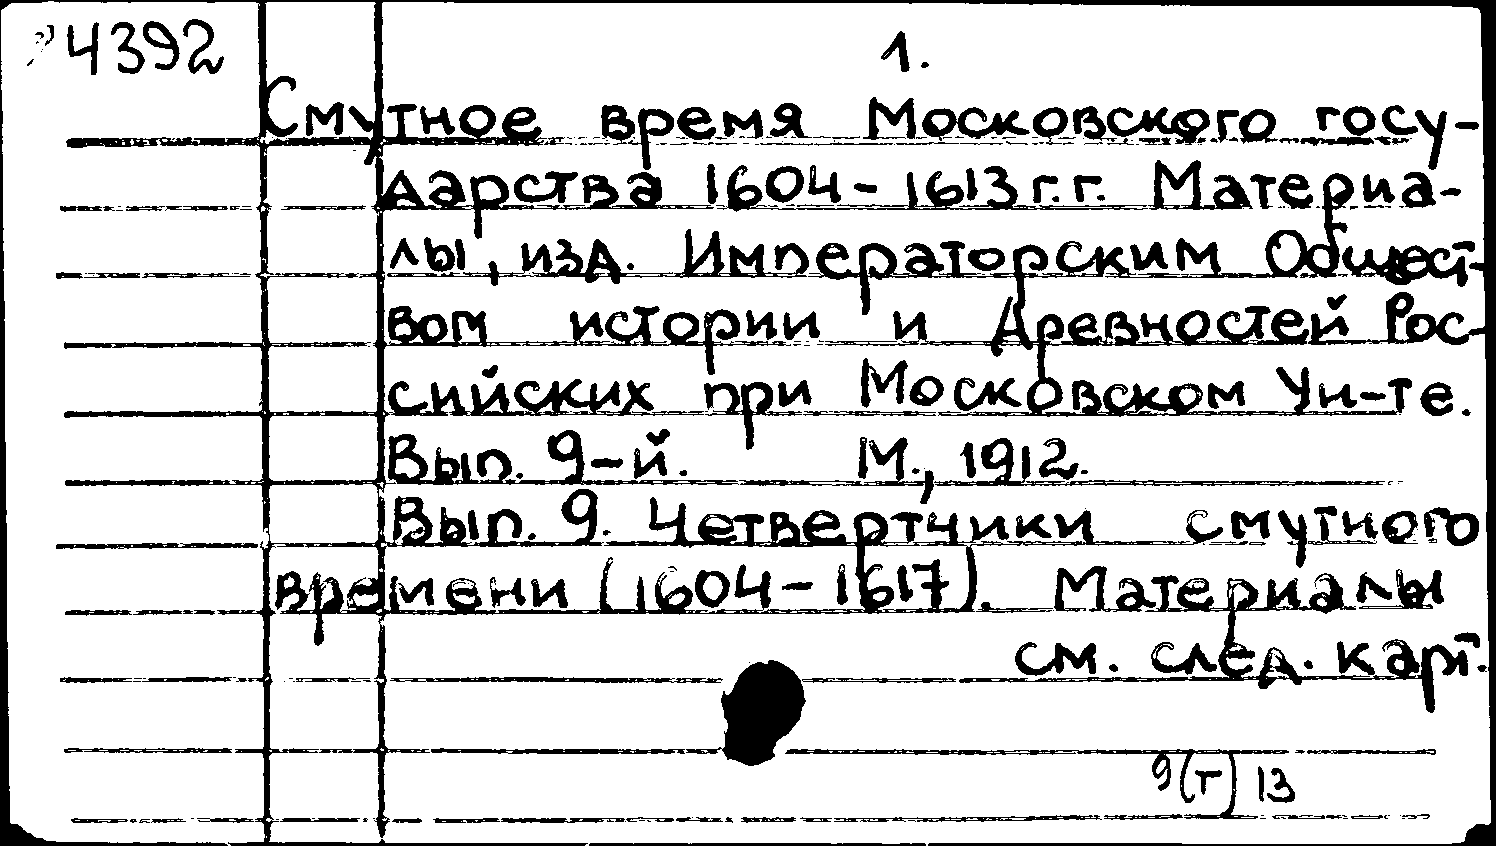 4392
1.
Смутное время Московского госу-
дарства 1604-1613 г.г. Материа-
лы, изд. Императорским Общест-
вом истории и Древностей Рос-
сийских при Московском Ун-те.
Вып. 9-й. М., 1912.
Вып. 9. Четвертчики смутного
времени (1604-1617). Материалы
см. след. карт.
9(т) 13